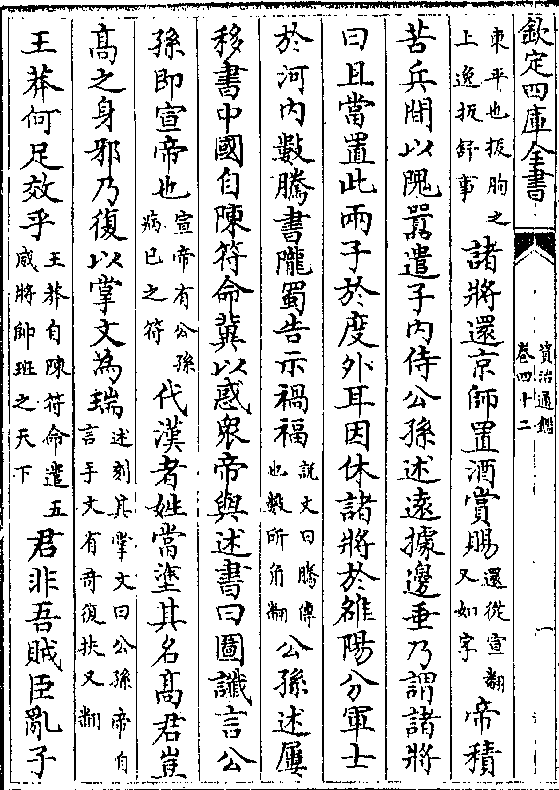 欽定四庫全書
資治通鑑
卷四十二
一
東平也拔朐之
上逸拔舒事
諸將還京師置酒賞賜
還從宣翻
又如字
帝積
苦兵間以隗囂遣子内侍公孫述遠據邊垂乃謂諸將
曰且當置此兩子於度外耳因休諸將於雒陽分軍士
於河内數騰書隴蜀告示禍福
説文曰騰傳
也數所角翻
公孫述屢
移書中國自陳符命冀以惑衆帝與述書曰圖讖言公
孫即宣帝也
宣帝有公孫
病已之符
代漢者姓當塗其名高君豈
高之身邪乃復以掌文為瑞
述刻其掌文曰公孫帝自
言手文有奇復扶又翻
王莽何足效乎
王莽自陳符命遣五
威將帥班之天下
君非吾賊臣亂子